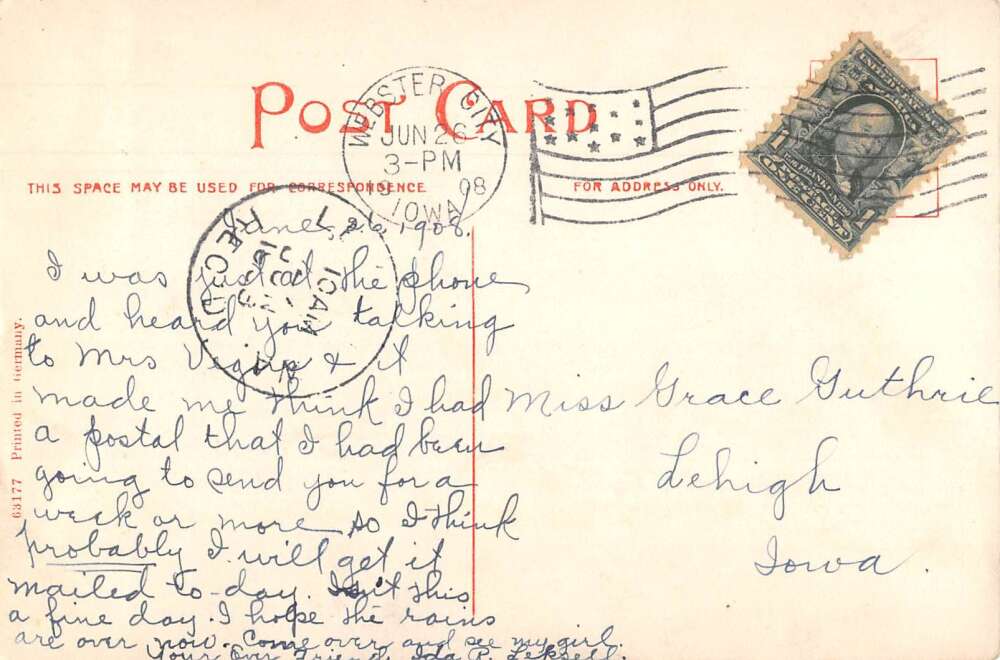 POST CARD
WEBSTER CITY
JUN 26
3-PM
1908
IOWA
THIS SPACE MAY BE USED FOR CORRESPONDENCE
FOR ADDRESS ONLY.
1
1
RECD.
10AM
June, 26, 1908.
I was just at the phone
and heard you talking
to Mrs & it
made me think I had
a postal that I had been
going to send you for a
week or more so I think
probably I will get it
mailed to-day. Isn't this
a fine day. I hope the rains
are over now. Come over and see my girl.
Your Ever Friend, Ida P. Leksell.
Miss Grace Guthrie
Lehigh
Iowa.
63177 Printed in Germany.